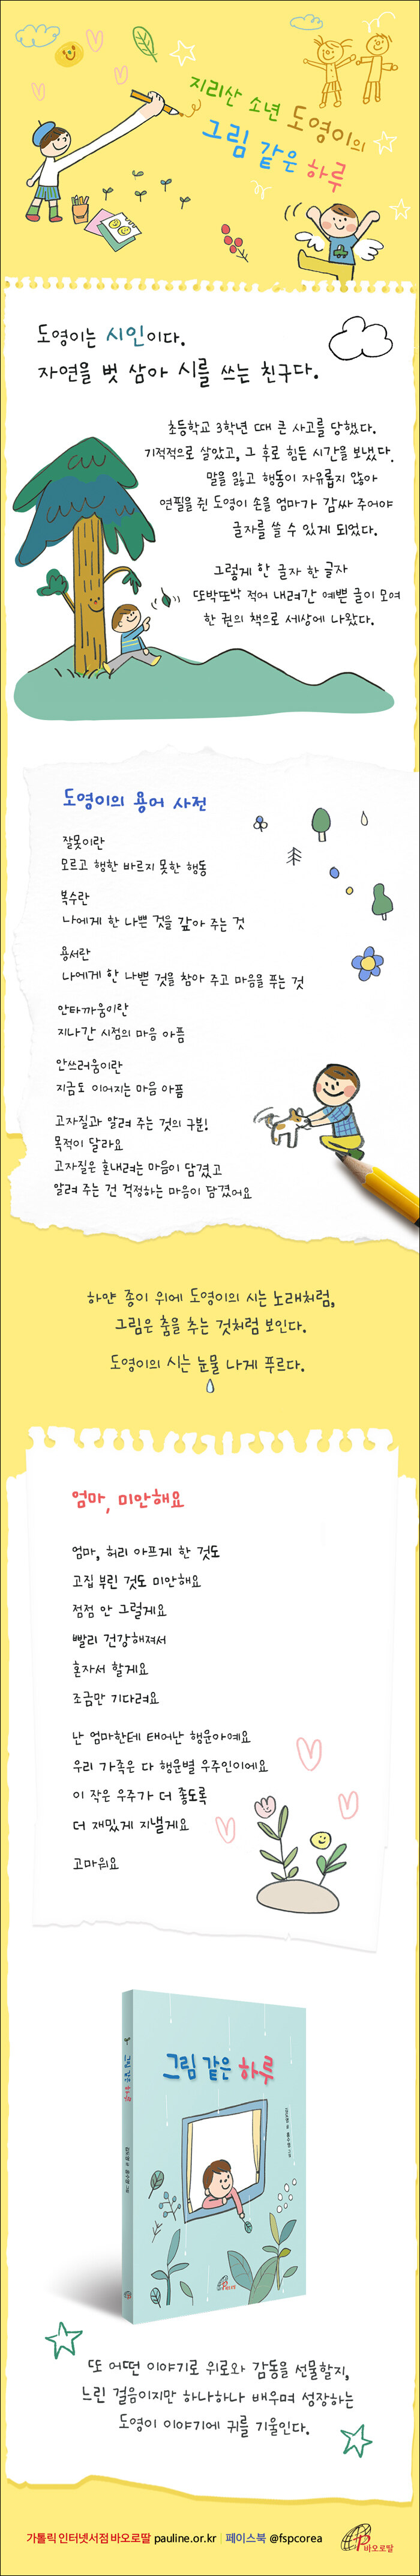 지리산 소년 도영이의
그림 같은 하루
도영이는 시인이다.
자연을 벗 삼아 시를 쓰는 친구다.
초등학교 3학년 때 큰 사고를 당했다.
기적적으로 살았고, 그 후로 힘든 시간을 보냈다.
말을 잃고 행동이 자유롭지 않아
연필을 쥔 도영이 손을 엄마가 감싸 주어야
글자를 쓸 수 있게 되었다.
그렇게 한 글자 한 글자
또박또박 적어 내려간 예쁜 글이 모여
한 권의 책으로 세상에 나왔다.
도영이의 용어 사전
잘못이란
모르고 행한 바르지 못한 행동
복수란
나에게 한 나쁜 것을 갚아 주는 것
용서란
나에게 한 나쁜 것을 참아 주고 마음을 푸는 것
안타까움이란
지나간 시점의 마음 아픔
안쓰러움이란
지금도 이어지는 마음 아픔
고자질과 알려 주는 것의 구분!
목적이 달라요
고자질은 혼내려는 마음이 담겼고
알려 주는 건 걱정하는 마음이 담겼어요
하얀 종이 위에 도영이의 시는 노래처럼,
그림은 춤을 추는 것처럼 보인다.
도영이의 시는 눈물 나게 푸르다.
엄마, 미안해요
엄마, 허리 아프게 한 것도
고집 부린 것도 미안해요
점점 안 그럴게요
빨리 건강해져서
혼자서 할게요
조금만 기다려요
난 엄마한테 태어난 행운아예요
우리 가족은 다 행운별 우주인이에요
이 작은 우주가 더 좋도록
더 재밌게 지낼게요
고마워요
그림 같은 하루
그림 같은 하루
바오로딸
또 어떤 이야기로 위로와 감동을 선물할지,
느린 걸음이지만 하나하나 배우며 성장하는
도영이 이야기에 귀를 기울인다.
가톨릭 인터넷서점 바오로딸 pauline.or.kr | 페이스북 @fspcorea
바오로딸